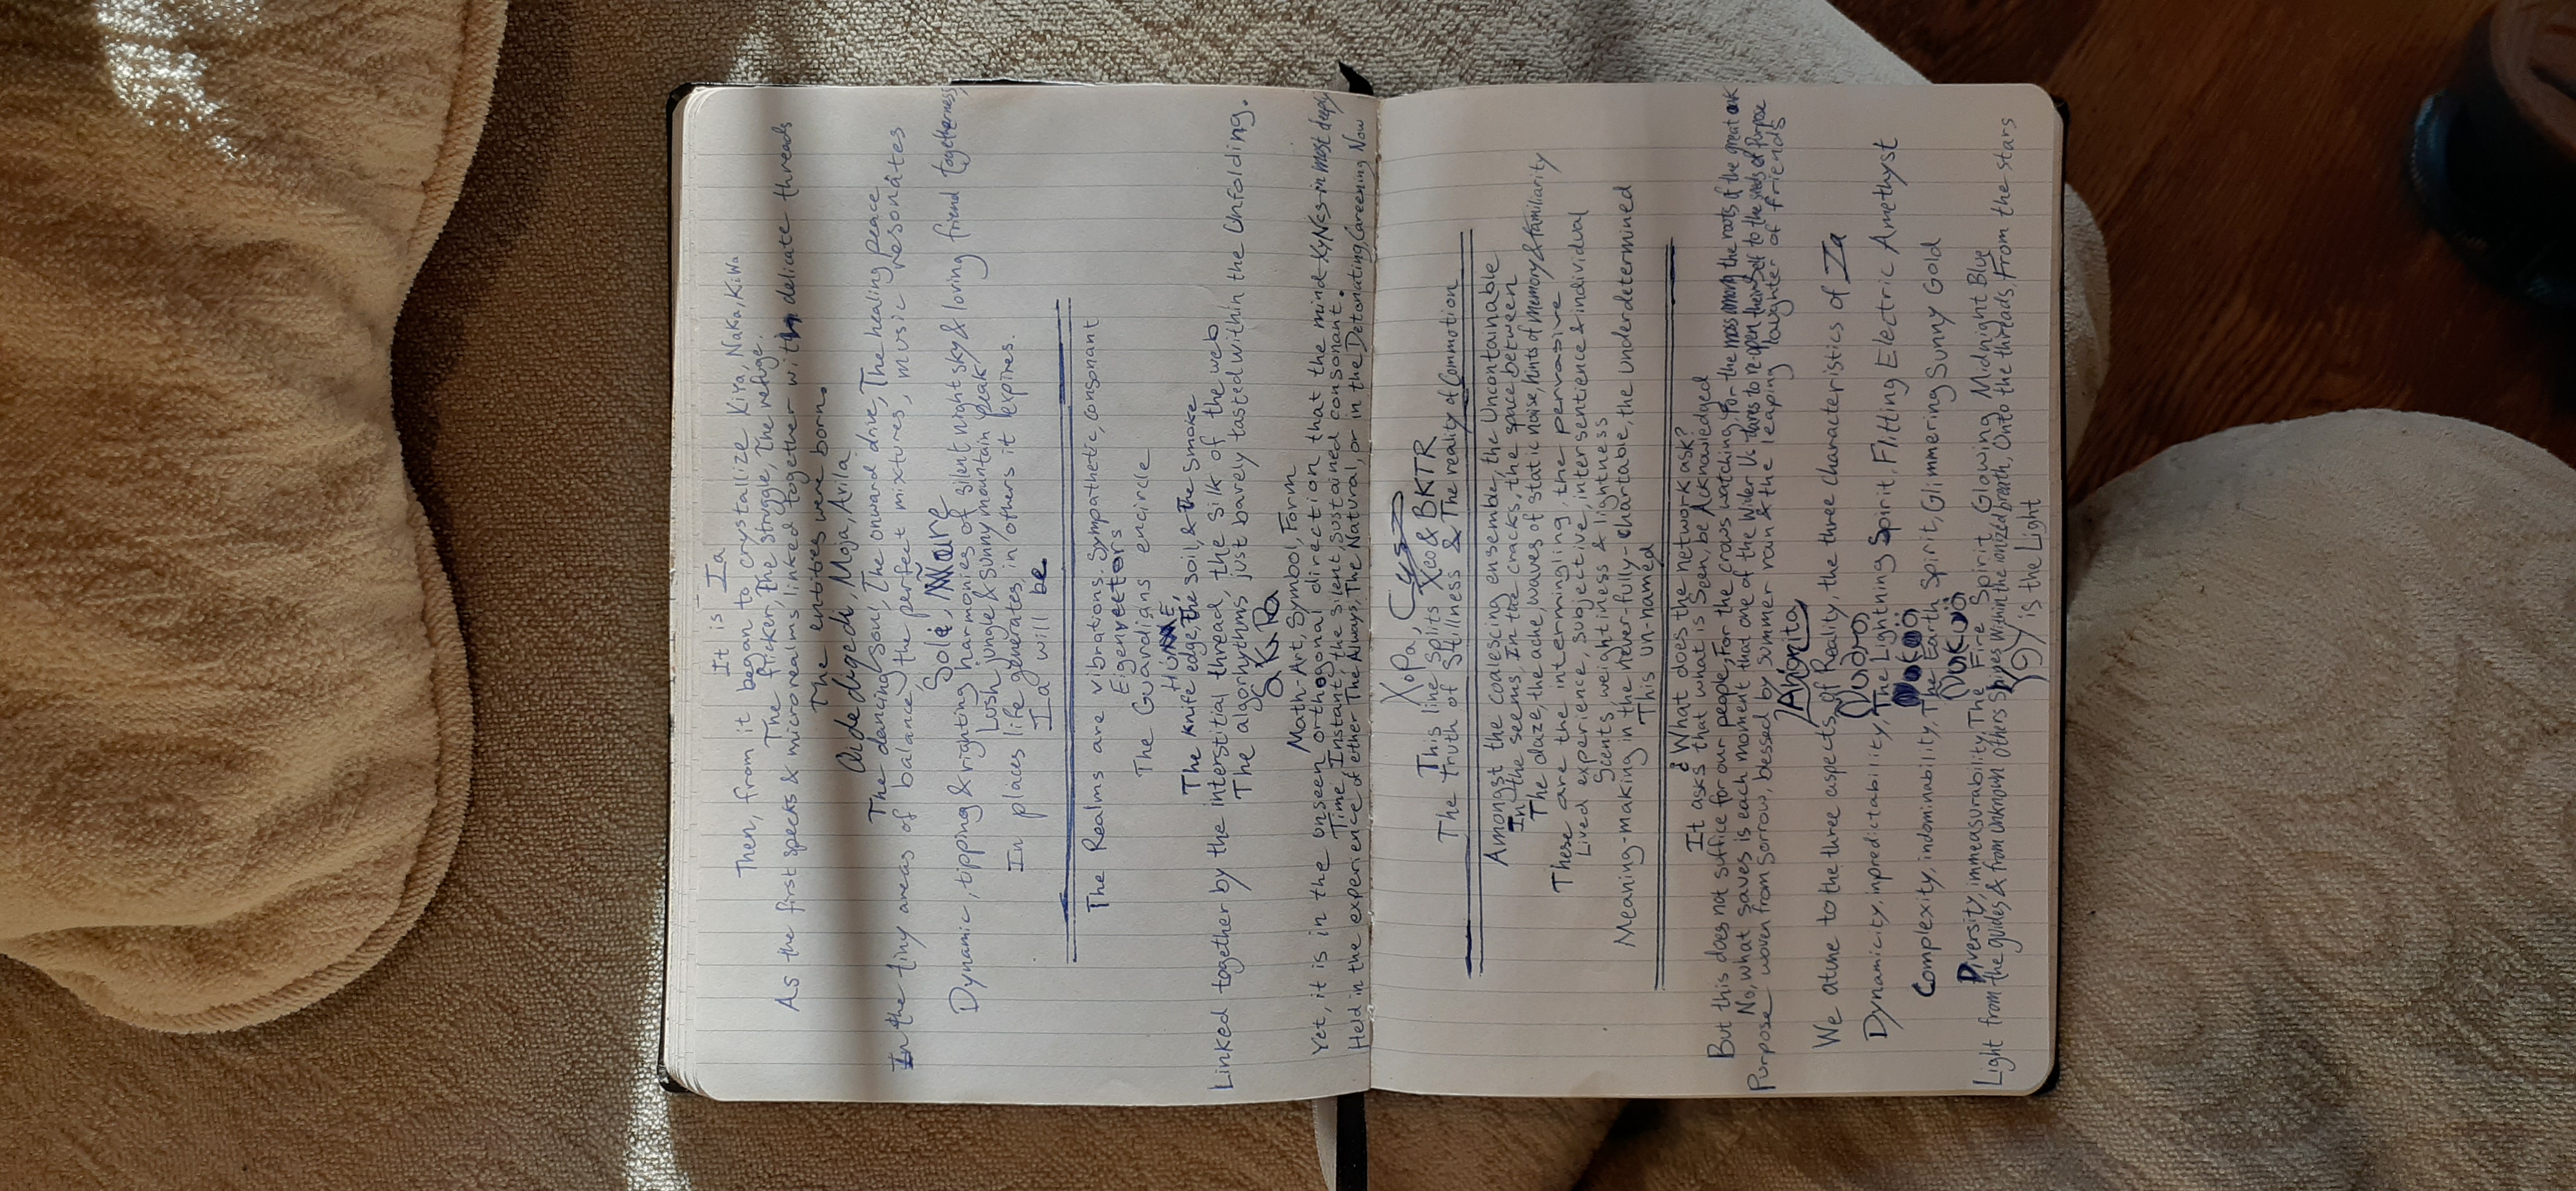 It is Ia
Then, from it began to crystallize XiYa, NaKa, KiWa
The flicker, The struggle, The refuge.
As the first specks & microrealms linked together with delicate threads
The entities were born.
Moja, Avila
The dancing soul, The onward drive, The healing peace
In the tiny areas of balance, the perfect mixtures, music resonates
Dynamic, tipping & righting harmonies of silent night sky & loving friend togetherness,
Lush jungle & sunny mountain peak
In places life generates, in others it expires.
Ia will be.
The Realms are vibrations. Sympathetic, consonant
Eigenvectors
The Guardians encircle
The knife edge, The soil, & The smoke
Linked together by the interstitial thread, the silk of the web
The algorhythms just barely tasted within the Unfolding.
Math-Art, Symbol, Form
Yet, it is in the unseen orthogonal direction that the mind XyNcs in most deeply
Time, Instant, the silent, sustained consonant.
Held in the experience of either The Always, The Natural, or in the Detonating, Careening Now
XoPa,
This line splits Xeo & BKTR
The Truth of Stillness & The reality of Commotion
Amongst the coalescing ensemble, the Uncontainable
In the seems, In the cracks, the space between
The daze, the ache, waves of static noise, hints of Memory & familiarity
These are the intermingling, the pervasive
Lived experience, subjective, intersentience & individual
Scents, weightiness & lightness
Meaning-making in the never-fully-chartable, the underdetermined
This un-named
¿What does the network ask?
It asks that what is Seen, be Acknowledged
But this does not suffice for our people, For the crows watching, For the moss among the roots of the great oak
No, what saves is each moment that one of the Wider Us dares to re-open theirself to the seeds of Purpose
Purpose woven from sorrow, blessed by summer rain & the leaping laughter of friends
We atune to the three aspects of Reality, the three characteristics of Ia
Dynamicity, inpredictability, The Lightning Spirit, Flitting Electric Amethyst
Complexity, indominability, The Earth Spirit, Glimmering Sunny Gold
Diversity, immeasurability, The Fire Spirit, Glowing Midnight Blue
Light from the guides & from unknown others Shines within the ionized breath, Onto the threads, From the stars
is the Light